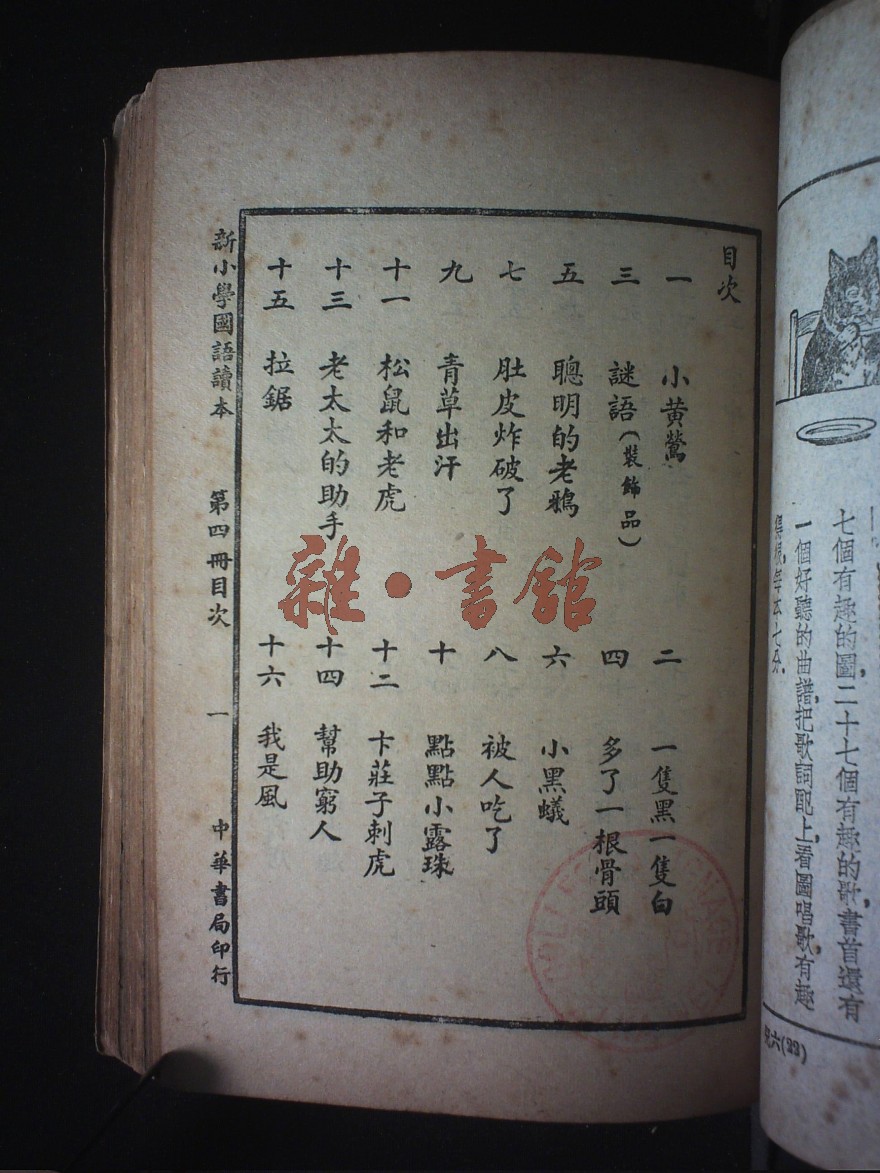 目次
一 小黃鶯
二 一隻黑一隻白
三 謎語(裝飾品)
四 多了一根骨頭
五 聰明的老鴉
六 小黑蟻
七 肚皮炸破了
八 被人吃了
九 青草出汗
十 點點小露珠
十一 松鼠和老虎
十二 卞莊子刺虎
十三 老太太的助手
十四 幫助窮人
十五 拉鋸
十六 我是風
新小學國語讀本 第四冊目次 一 中華書局印行
雜·書館
七個有趣的圖,二十七個有趣的歌,書首還有
一個好聽的曲譜,把歌詞配上,看圖唱歌,有趣
得很,每本七分.
兒六(22)